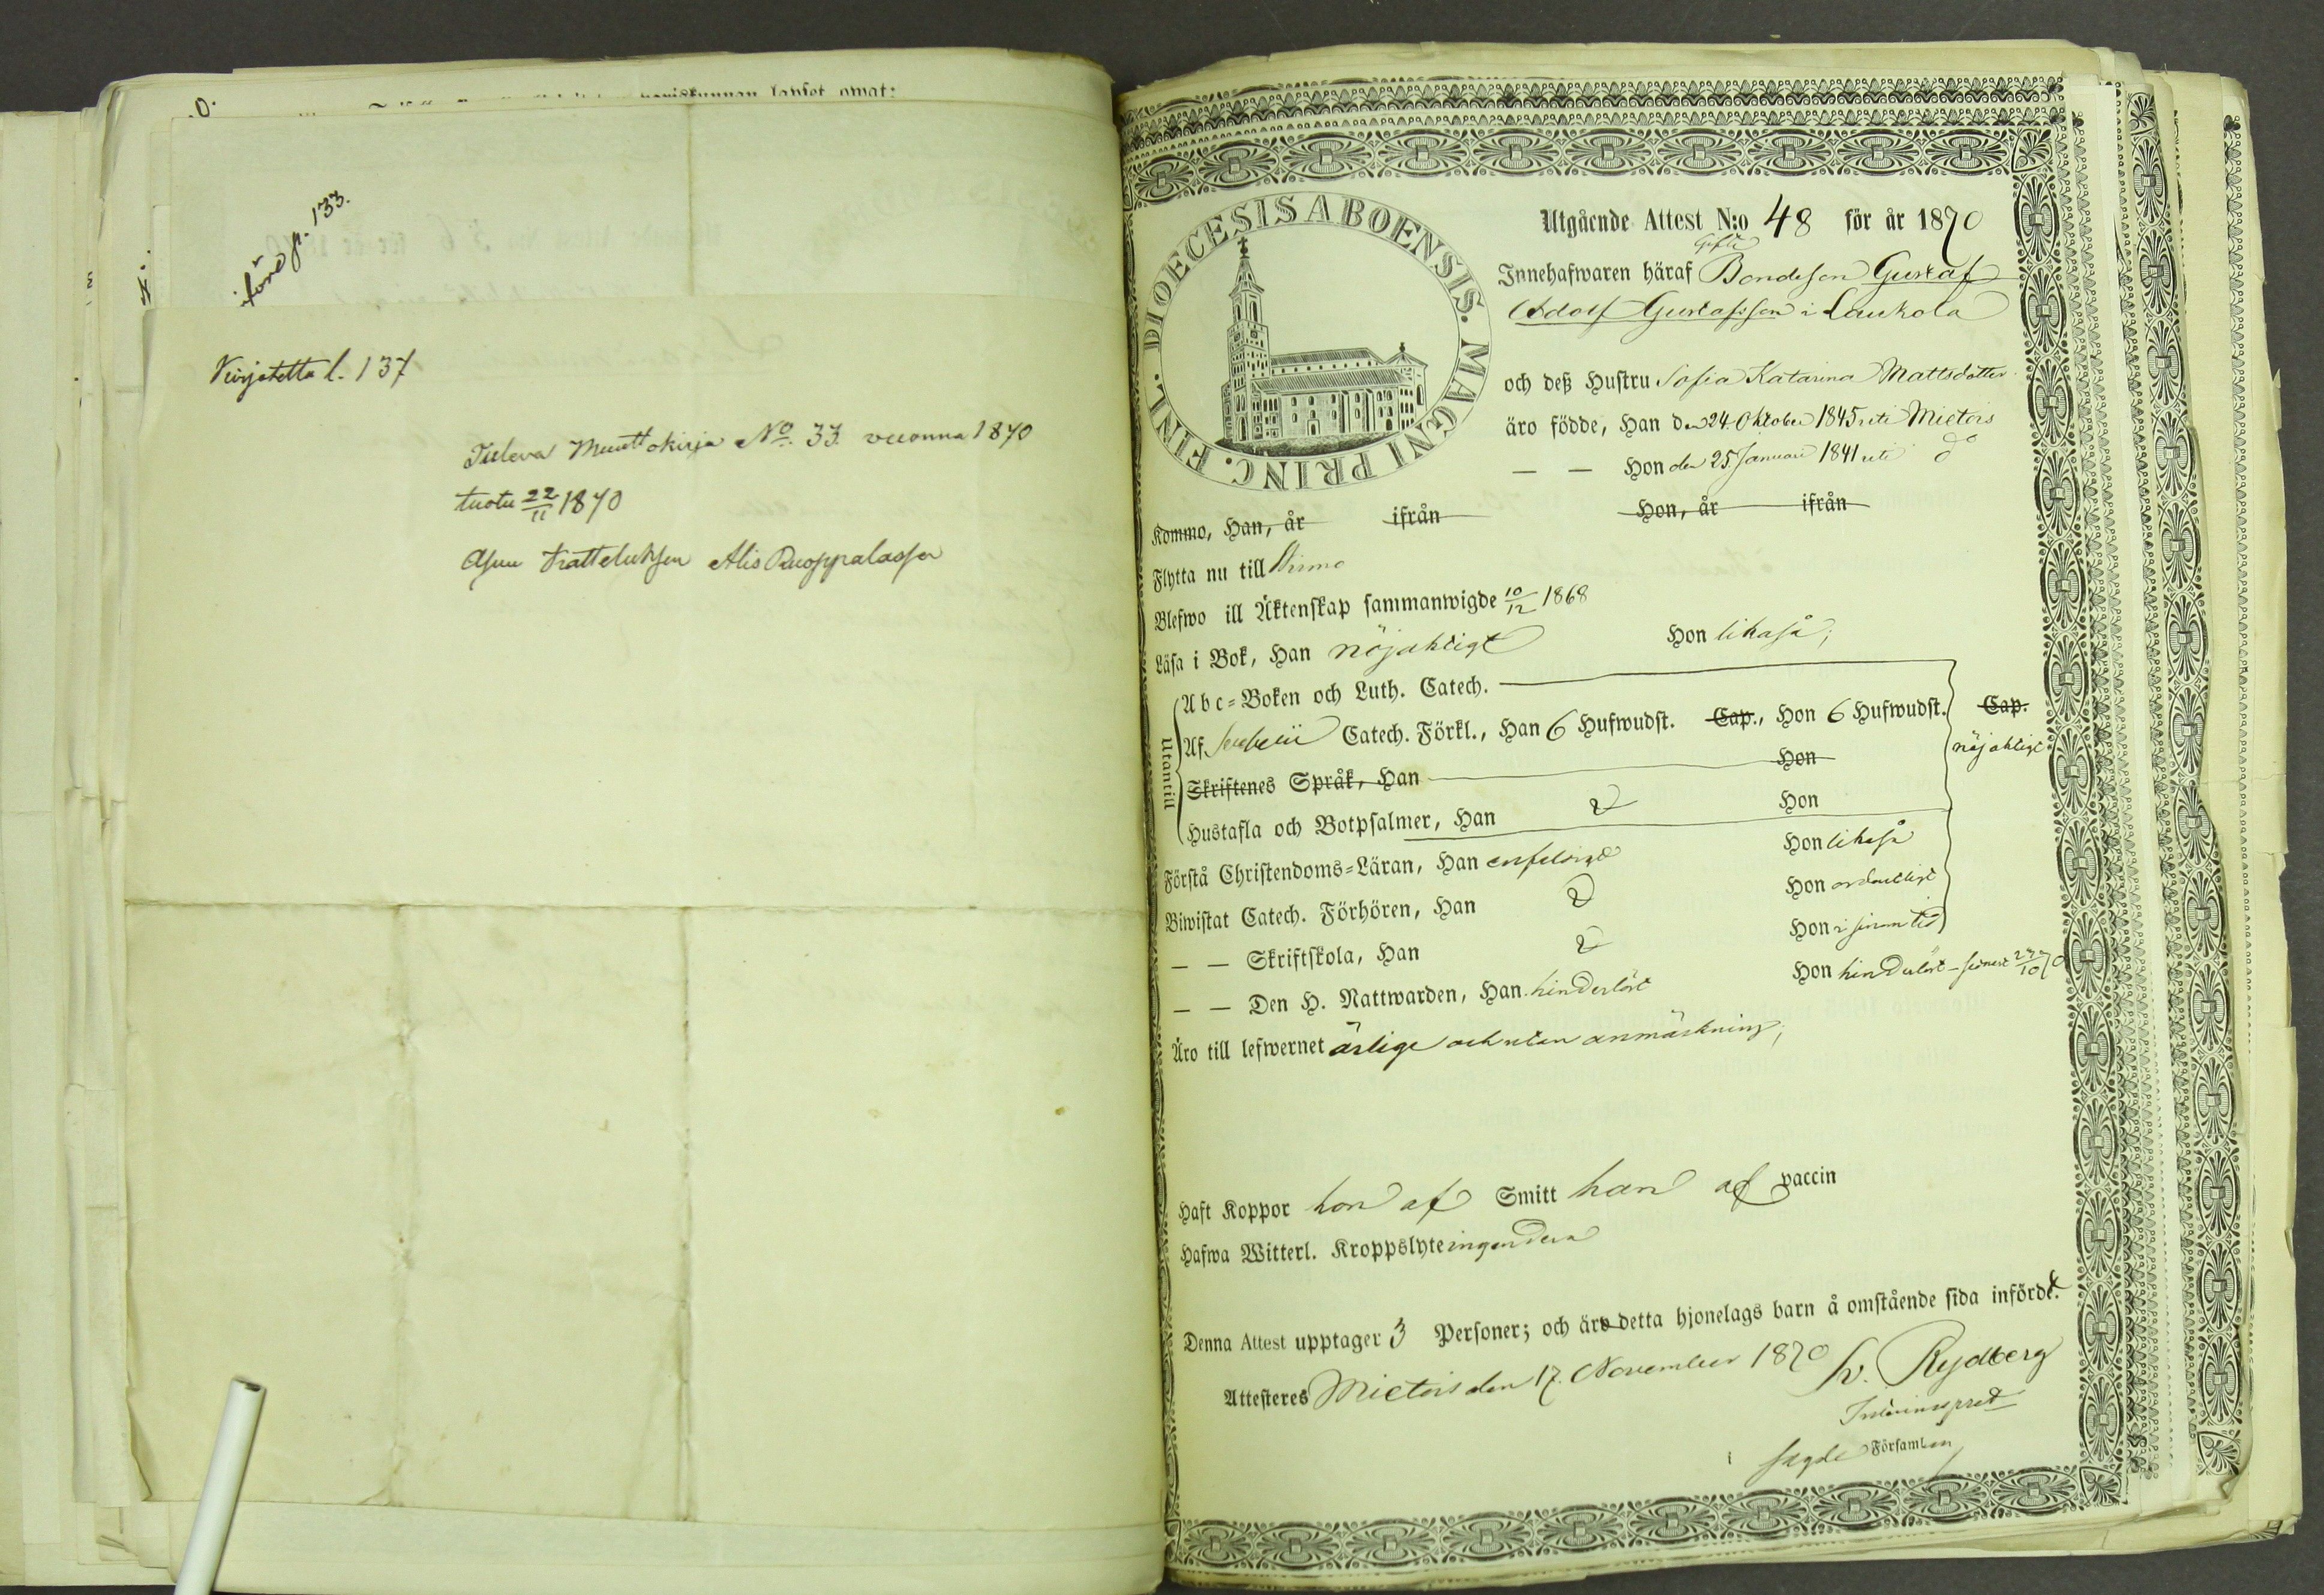 införd p. 133.
Kirjotettu l. 137
Tuleva Muuttokirja No. 33 vuonna 1870
tuotu 22/11 1870
Asuu
lapset omat:
DIOECESIS ABOENSIS. MAGNI PRINC. FINL.
Utgående Attest N:o 48 för år 1870
Gifte
Innehafwaren häraf Bondeson Gustaf
Adolf Gustafsson i Laukola
och deß Hustru Sofia Katarina Mattsdotter
äro födde, Han den 24 Oktober 1845 uti Mietois
— — Hon den 25 Januari 1841 uti do
Kommo, Han, år ifrån Hon, år ifrån
Flytta nu till Virmo
Blefwo ill Äktenskap sammanwigde 10/12 1868
Läsa i Bok, Han nöjaktigt Hon likaså;
Utantill
Abc-Boken och Luth. Catech.
Af Catech. Förkl., Han 6 Hufwudst. Cap., Hon 6 Hufwudst. Cap.
nöjaktigt
Skriftenes Språk, Han Hon
Hustafla och Botpsalmer, Han Hon
Förstå Christendoms-Läran, Han enfaldigt Hon likaså
Biwistat Catech. Förhören, Han Hon ordentligt
— — Skriftskola, Han Hon i sinom tid
— — Den H. Nattwarden, Han hinderlöst Hon hinderlöst - senast 27/10 70
Äro till lefwernet ärlige och utan anmärkning;
Haft Koppor hon af Smitt han af vaccin
Hafwa Witterl. Kroppslyte ingendera
Denna Attest upptager 3 Personer; och äro detta hjonelags barn å omstående sida införde.
Attesteres Mietois den 17. November 1870 Rydberg
i sagde Församling